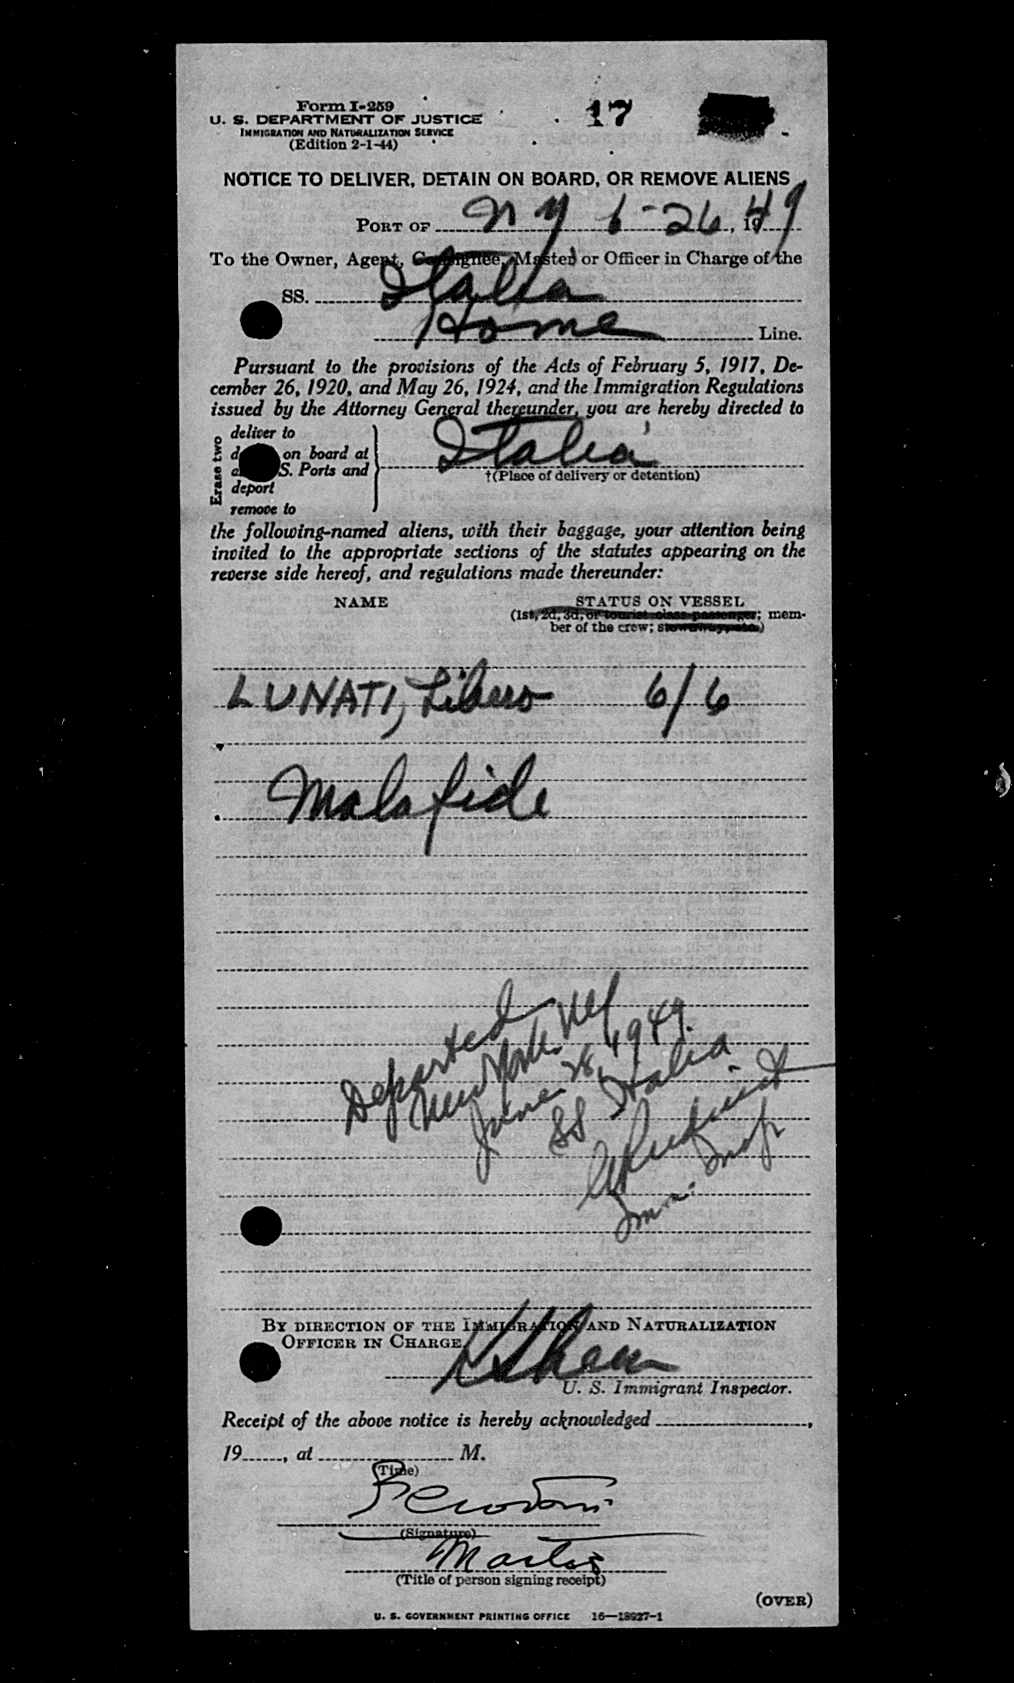 Form I-259
U. S. DEPARTMENT OF JUSTICE
IMMIGRATION AND NATURALIZATION SERVICE
(Edition 2-1-44)
17
NOTICE TO DELIVER, DETAIN ON BOARD, OR REMOVE ALIENS
PORT OF N Y 6-26, 1949
To the Owner, Agent, Consignee, Master or Officer in Charge of the
SS. Italia
Home Line.
Pursuant to the provisions of the Acts of February 5, 1917, De-
cember 26, 1920, and May 26, 1924, and the Immigration Regulations
issued by the Attorney General thereunder, you are hereby directed to
Erase two
deliver to
on board at
S. Ports and
deport
remove to
Italia
†(Place of delivery or detention)
the following-named aliens, with their baggage, your attention being
invited to the appropriate sections of the statutes appearing on the
reverse side hereof, and regulations made thereunder:
NAME STATUS ON VESSEL
(1st, 2d, 3d, or tourist class passenger; mem-
ber of the crew; stowaway, etc.)
LUNATI, Libero 6/6
Malafide
Departed
New York, NY
June 26, 1949.
SS Italia
Imm. Insp
BY DIRECTION OF THE IMMIGRATION AND NATURALIZATION
OFFICER IN CHARGE
U. S. Immigrant Inspector.
Receipt of the above notice is hereby acknowledged ,
19 , at M.
(Time)
(Signature)
Master
(Title of person signing receipt)
(OVER)
U. S. GOVERNMENT PRINTING OFFICE 16—18927-1